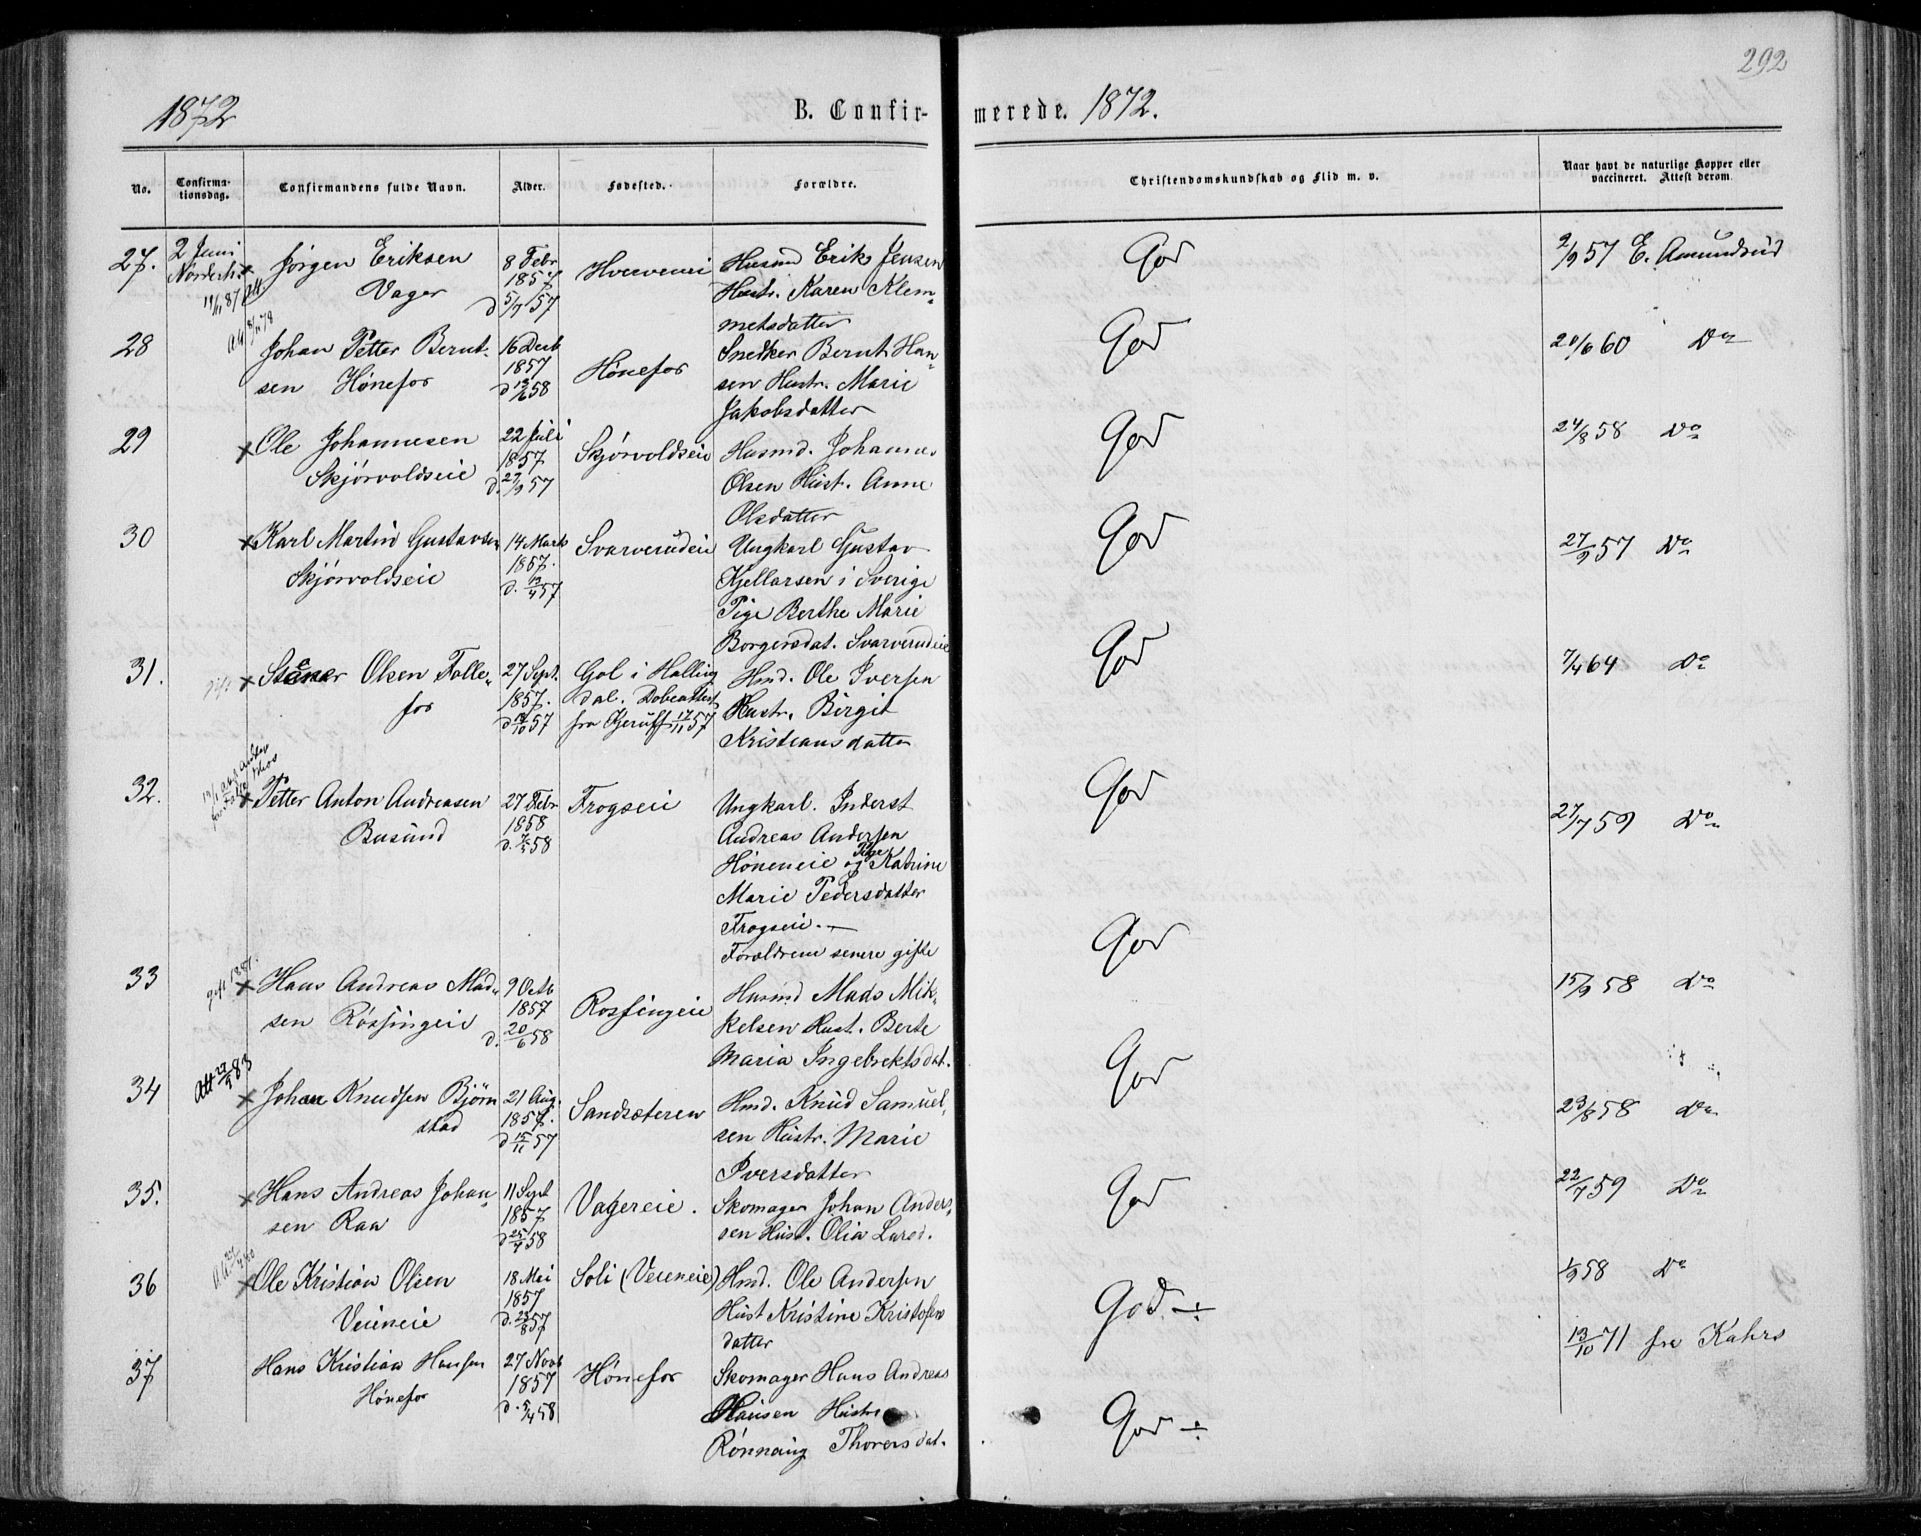 292
1872 B. Confir- merede. 1872.
No. Confirma- tionsdag. Confirmandens fulde Navn. Alder. Fødested. Forældre. Christendomskundskab og Flid m. v. Naar havt de naturlige Kopper eller vaccineret. Attest derom.
27. 2 Juni Jørgen Eriksen 8 Febr Hvervenei Husmd Erik Jensen God 2/9 57 E. Amundrud
Norderh. Vager 1857 Hustr. Karen Klem-
11/11 87 Att d 5/7 57 metsdatter
28 Johan Petter Bernt- 16 Decb Hønefos Snedker Bernt Han- God 20/6 60 Do
sen Hønefos 1857 sen Hustr. Marie
58 Jakobsdatter
29 Ole Johannesen 22 Juli Skjørvoldseie Husmd. Johannes God 24/8 58 Do
Skjørvoldseie 1857 Olsen Hust. Anne
d. 27/9 57 Olsdatter
30 Karl Martin Gustavsen 14 Marts Svarverudeie Ungkarl Gustav God 27/9 57 Do
Skjørvoldseie 1857. Kjellarsen i Sverige
d. 12/4 57 Pige Berthe Marie
Borgersdat. Svarverudeie
31. gift Stener Olsen Folle- 27 Sept. Gol i Halling God 7/4 64 Do
fos 1857. dal. Dobeattest Hmd. Ole Iversen
d 18/10 57 fra 17/11 57 Hustr. Birgit
Kristiansdatter
32. Petter Anton Andreasen 27 Febr Frogseie Ungkarl. Inderst God 27/7 59 Do
Busund 1858 Andreas Andersen
d. 58 Høneneie og Pige Katrine
Marie Pedersdatter
Frogseie.
Forældrene senere gifte
33 gift Hans Andreas Mad- 9 Octb Rossingeie Husmd Mads Mik- God 15/9 58 Do
sen Røssingeie 1857 kelsen Hust. Berte
d. 20/6 58 Maria Ingebrektsdat.
34 Att 83 Johan Knudsen Bjørn 21 Aug. Sandsæteren Hmd. Knud Samuel- God 23/8 58 Do
stad 1857. sen Hustr. Marie
d 15/11 57 Iversdatter
35. Hans Andreas Johan- 11 Sept Vagereie. Skomager Johan Anders- God 22/7 59 Do
sen Raa 1857 sen Hust. Olia Larsd.
d 25/4 58
36 Ole Kristian Olsen 18 Mai Soli (Veieneie) Hmd. Ole Andersen God ÷ 1/9 58 Do
Veieneie 1857 Hust Kristine Kristofers
d. 23/8 57 datter
37 Hans Kristian Hansen 27 Novb Hønefos Skomager Hans Andreas God ÷ 13/10 71 fra Kahrs
Hønefos 1857 Hansen Hustr
d. 5/4 58 Rønnaug Thoresdat.